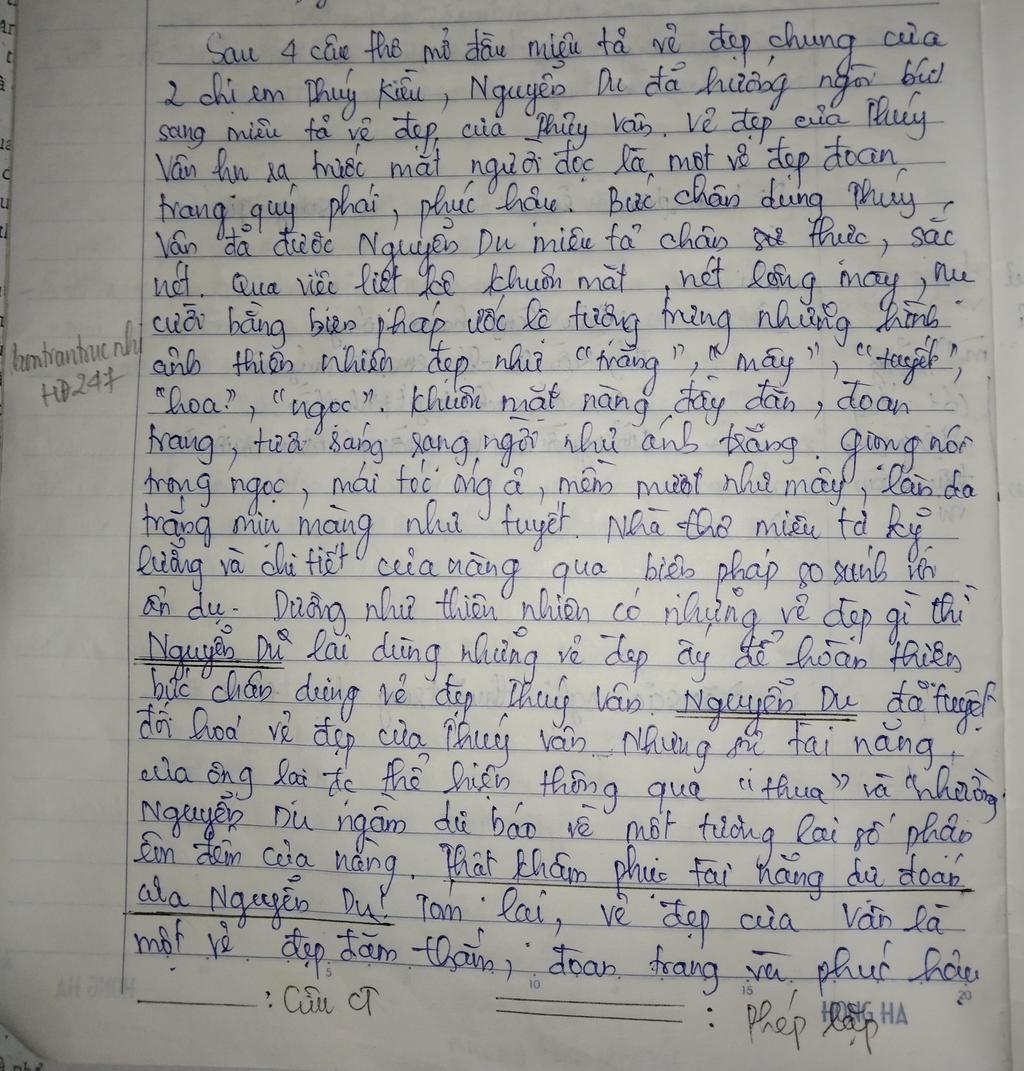 Sau 4 câu thơ mở đầu miêu tả vẻ đẹp chung của
2 chị em Thúy Kiều, Nguyễn Du đã hướng ngòi bút
sang miêu tả vẻ đẹp của Thúy Vân. Vẻ đẹp của Thúy
Vân hn ra trước mắt người đọc là một vẻ đẹp đoan
trang quý phái, phúc hậu. Bức chân dung Thúy
Vân đã được Nguyễn Du miêu tả chân thực, sắc
nét. Qua việc liệt kê khuôn mặt, nét lông mày, nụ
cười bằng biện pháp ước lệ tượng trưng những hình
bomtrantrucnhi
HĐ247
ảnh thiên nhiên đẹp như "trăng", "mây", "tuyết",
"hoa", "ngọc". Khuôn mặt nàng đầy đặn, đoan
trang, tươi sáng sang ngời như ánh trăng. Giọng nói
trong ngọc, mái tóc óng ả, mềm mượt như mây, làn da
trắng mịn màng như tuyết. Nhà thơ miêu tả kỹ
lưỡng và chi tiết của nàng qua biện pháp so sánh với
ẩn dụ. Dường như thiên nhiên có những vẻ đẹp gì thì
Nguyễn Du lại dùng những vẻ đẹp ấy để hoàn thiện
bức chân dung vẻ đẹp Thúy Vân Nguyễn Du đã tuyệt
đối hoá vẻ đẹp của Thúy Vân. Nhưng sự tài năng
của ông lại đc thể hiện thông qua "thua" và "nhường"
Nguyễn Du ngầm dự báo về một tương lai số phận
êm đềm của nàng. Thật khâm phục tài năng dự đoán
của Nguyễn Du! Tóm lại, vẻ đẹp của Vân là
một vẻ đẹp đằm thắm, đoan trang và phúc hậu
: Câu CT
: Phép lặp
5 10 15 20
HONG HA